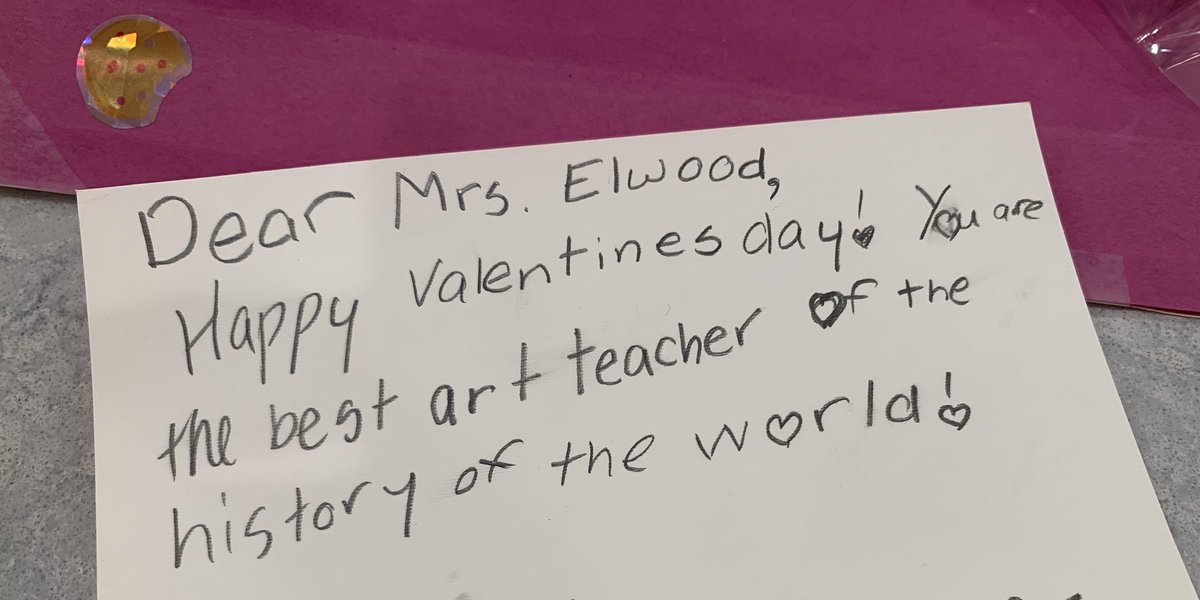 Dear Mrs. Elwood,
Happy Valentines day! You are
the best art teacher of the
history of the world!